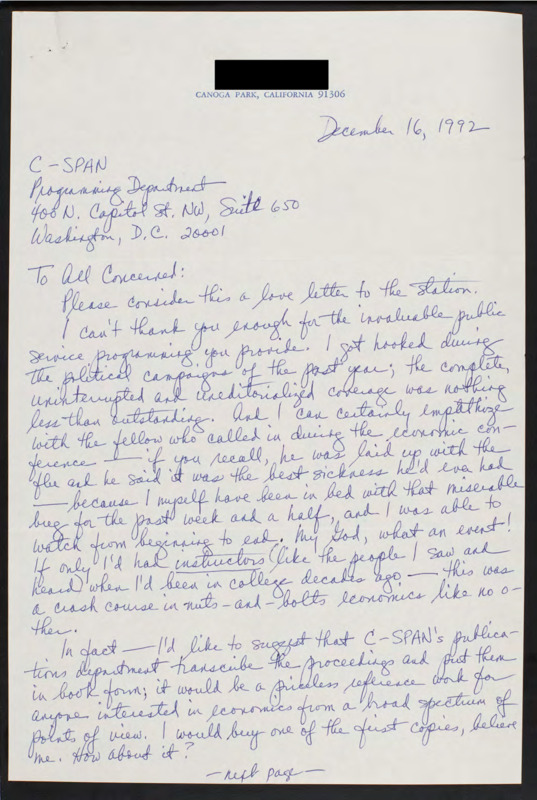 CANOGA PARK, CALIFORNIA 91306
December 16, 1992
C-SPAN
Programming Department
400 N. Capitol St. NW, Suite 650
Washington, D.C. 20001
To All Concerned:
Please consider this a love letter to the station.
I can't thank you enough for the invaluable public
service programming you provide. I got hooked during
the political campaigns of the past year; the complete,
uninterrupted and uneditorialized coverage was nothing
less than outstanding. And I can certainly empathize
with the fellow who called in during the economic con-
ference — if you recall, he was laid up with the
flu and he said it was the best sickness he'd ever had
— because I myself have been in bed with that miserable
bug for the past week and a half, and I was able to
watch from beginning to end. My God, what an event!
If only I'd had instructors (like the people I saw and
heard) when I'd been in college decades ago — this was
a crash course in nuts-and-bolts economics like no o-
ther.
In fact — I'd like to suggest that C-SPAN's publica-
tions department transcribe the proceedings and put them
in book form; it would be a priceless reference work for
anyone interested in economics from a broad spectrum of
points of view. I would buy one of the first copies, believe
me. How about it?
— next page —